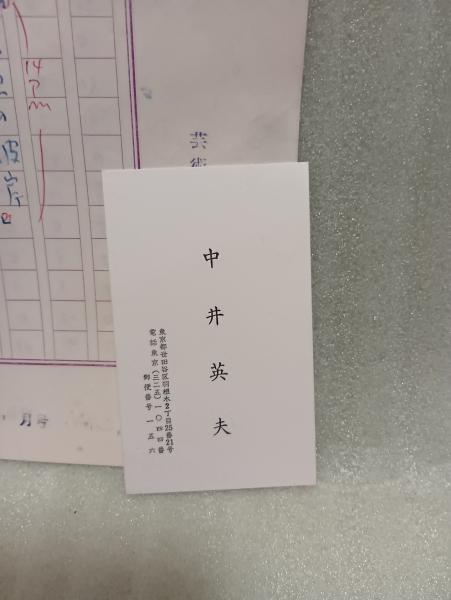 中井英夫
東京都世田谷区羽根木2丁目25番21号
電話東京(三二五)一〇四四番
郵便番号 一五六
芸術
月号
14